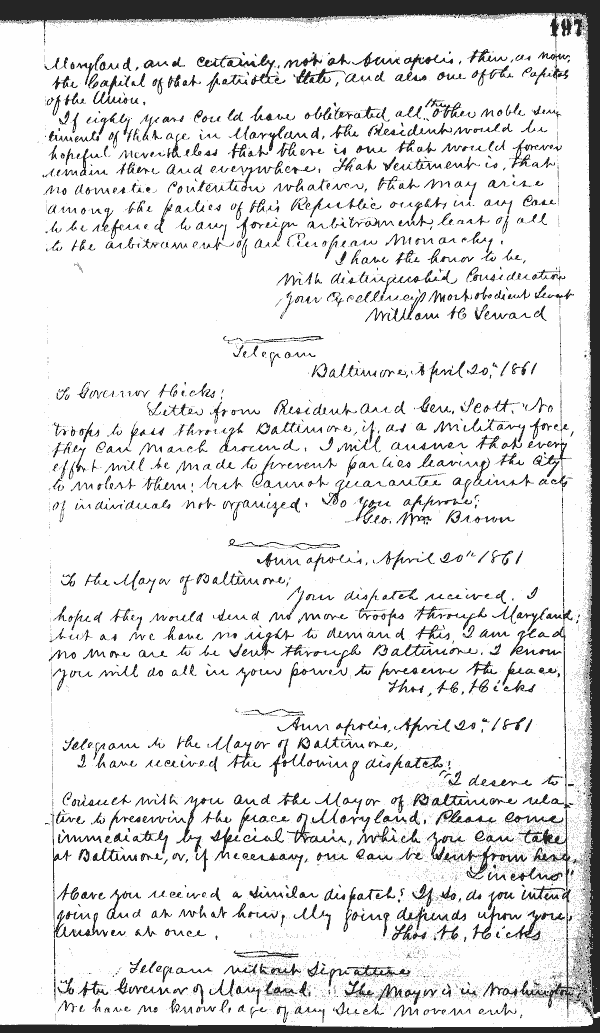 197
Maryland, and certainly not at Annapolis, then, as now,
the Capital of that patriotic State, and also one of the Capitals
of the Union.
If eighty years could have obliterated all the other noble sen-
timents of that age in Maryland, the President would be
hopeful nevertheless that there is one that would forever
remain there and everywhere. That Sentiment is, that
no domestic Contention whatever, that may arise
among the parties of this Republic ought in any case
to be referred to any foreign arbitrament, least of all
to the arbitrament of an European Monarchy.
I have the honor to be,
With distinguished Consideration
Your Excellency's Most obedient Servant
William H Seward
Telegram
Baltimore, April 20th, 1861
To Governor Hicks:
Letter from President and Gen. Scott. "No
troops to pass through Baltimore, if, as a military force,
they can march around. I will answer that every
effort will be made to prevent parties leaving the City
to molest them; but cannot guarantee against acts
of individuals not organized. Do you approve?
Geo. Wm. Brown
Annapolis, April 20th 1861
To the Mayor of Baltimore;
Your dispatch received. I
hoped they would send no more troops through Maryland;
but as we have no right to demand this, I am glad
no more are to be sent through Baltimore. I know
you will do all in your power to preserve the peace.
Thos, H, Hicks
Annapolis, April 20th, 1861
Telegram to the Mayor of Baltimore,
I have received the following dispatch:
"I desere to
Consuct with you and the Mayor of Baltimore rela-
tive to preserving the peace of Maryland. Please come
immediately by special train, which you can take
at Baltimore, or, if necessary, one can be sent from here.
Lincolns"
Have you received a similar dispatch? If so, do you intend
going and at what hour, My going depends upon you.
Answer at once.
Thos. H. Hicks
Telegram without Signature
To the Governor of Maryland. The Mayor is in Washington,
We have no knowledge of any such movement.